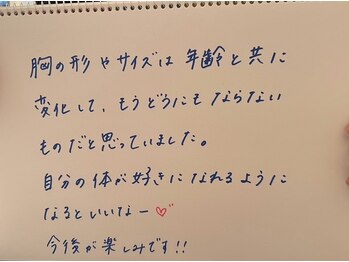 胸の形やサイズは年齢と共に
変化して、もうどうにもならない
ものだと思っていました。
自分の体が好きになれるように
なるといいなー♡
今後が楽しみです!!